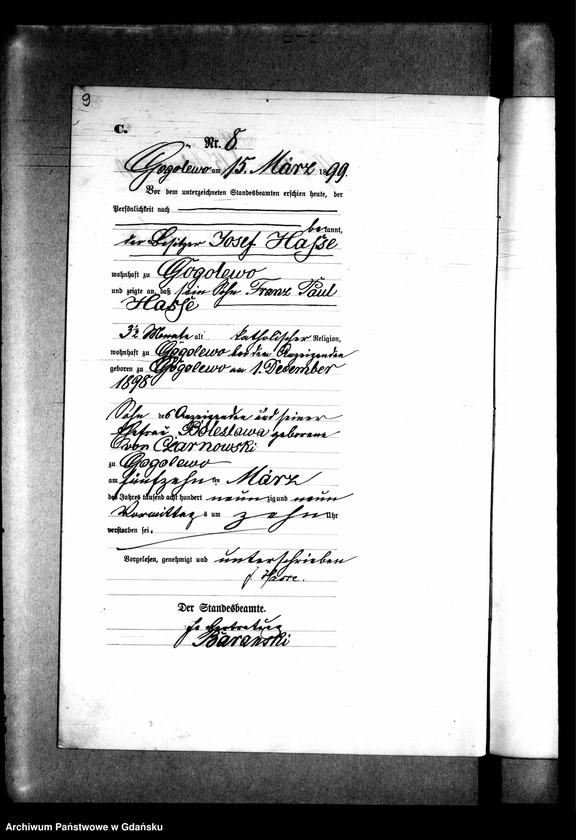 9
C.
Nr. 8.
Gogolewo am 15. März 1899.
Vor dem unterzeichneten Standesbeamten erschien heute, der
Persönlichkeit nach
bekannt,
der Besitzer Josef Hasse
wohnhaft zu Gogolewo
und zeigte an, daß sein Sohn Franz Paul
Hasse
3½ Monate alt katholischer Religion,
wohnhaft zu Gogolewo bei dem Anzeigenden
geboren zu Gogolewo am 1. Dezember
1898
Sohn des Anzeigenden und seiner
Ehefrau Boleslawa geborene
von Czarnowski
zu Gogolewo
am fünfzehn ten März
des Jahres tausend acht hundert neun zig und neun
Vormittag s um zehn Uhr
verstorben sei.
Vorgelesen, genehmigt und unterschrieben
Der Standesbeamte.
In Vertretung
Baranski
Archiwum Państwowe w Gdańsku